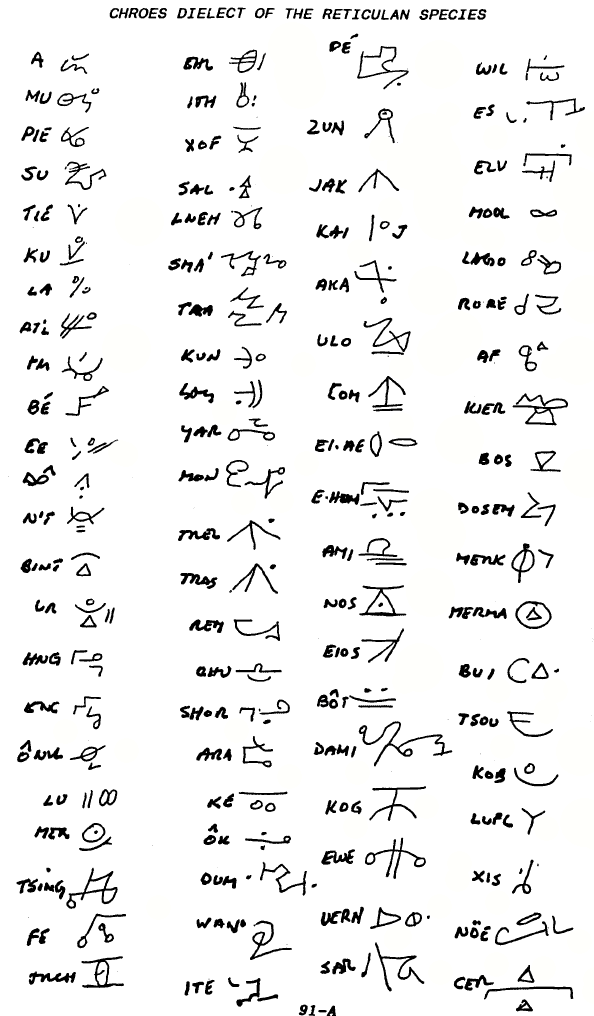 CHROES DIELECT OF THE RETICULAN SPECIES
A
MU
PIE
SU
TIÉ
KU
LA
BÉ
EE
DÔ
N'T
UR
HNG
ÔNU
LU
MER
TSING
FE
ITH
XOF
SAL
LNEH
SMA'
TRA
KUN
YAR
MON
TREL
TRAS
REM
SHOR
ARA
KÉ
ÔK
DUM
ITE
DÉ
ZUN
JAK
KAI
AKA
ULO
EI·AE
E·HOM
AMI
NOS
EIOS
BÔT
DAMI
KOG
EWE
VERN
SAR
WIL
ES
ELV
MOOL
LAGO
RO RÉ
AF
KIER
BOS
DOSEM
MENK
MERMA
BUI
TSOU
KOB
LUFL
XIS
NÖE
CER
91-A